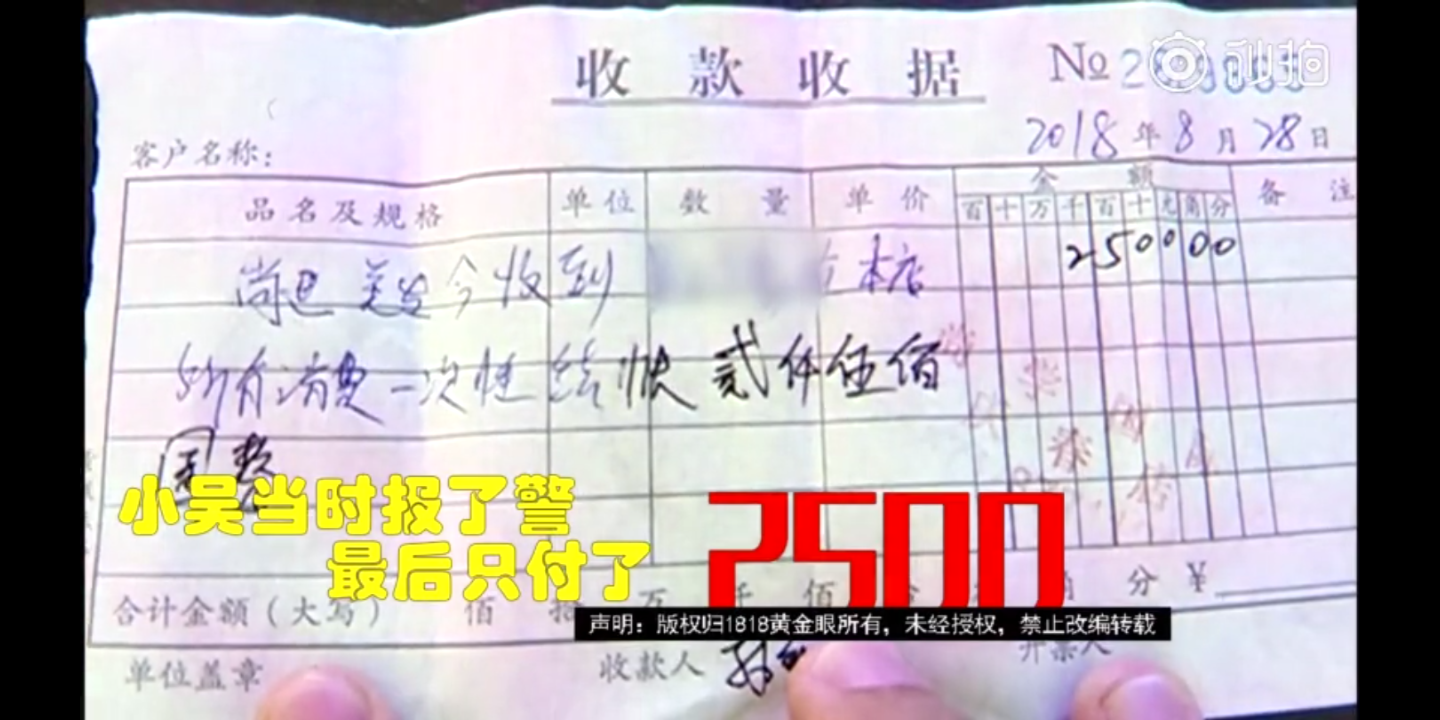 收款收据
№
秒拍
2018年8月28日
客户名称:
品名及规格 单位 数量 单价 金额 备注
百十万千百十元角分
尚艺美发今收到 本店 250000
所有消费一次性结帐贰仟伍佰
圆整
小吴当时报了警
最后只付了 2500
合计金额(大写) 佰 拾 万 仟 佰 分 ¥
声明:版权归1818黄金眼所有,未经授权,禁止改编转载
单位盖章 收款人 开票人